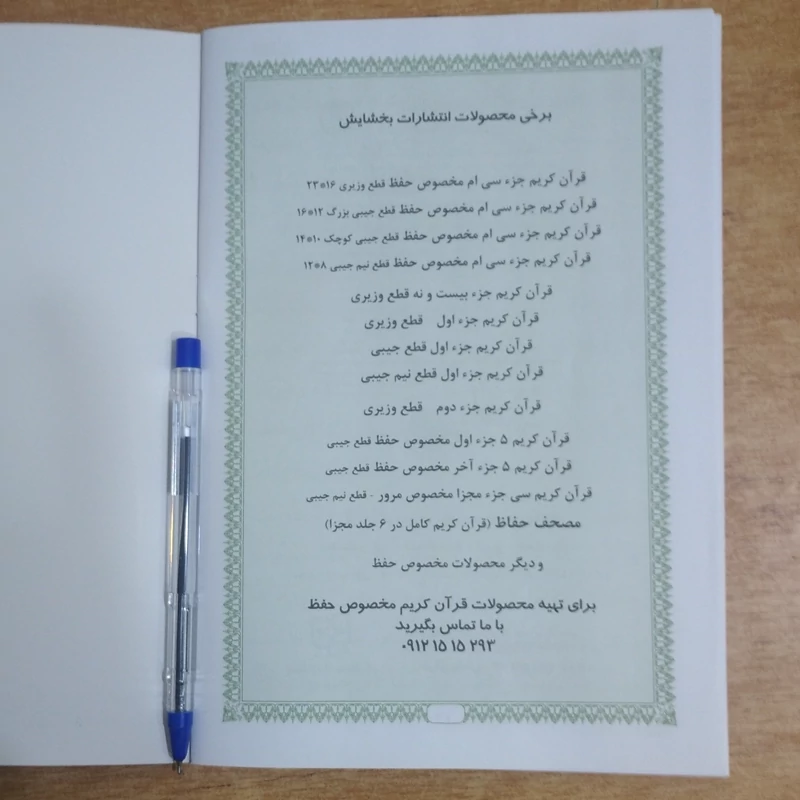 برخی محصولات انتشارات بخشایش
قرآن کریم جزء سی ام مخصوص حفظ قطع وزیری ۱۶*۲۳
قرآن کریم جزء سی ام مخصوص حفظ قطع جیبی بزرگ ۱۲*۱۶
قرآن کریم جزء سی ام مخصوص حفظ قطع جیبی کوچک ۱۰*۱۴
قرآن کریم جزء سی ام مخصوص حفظ قطع نیم جیبی ۸*۱۲
قرآن کریم جزء بیست و نه قطع وزیری
قرآن کریم جزء اول قطع وزیری
قرآن کریم جزء اول قطع جیبی
قرآن کریم جزء اول قطع نیم جیبی
قرآن کریم جزء دوم قطع وزیری
قرآن کریم ۵ جزء اول مخصوص حفظ قطع جیبی
قرآن کریم ۵ جزء آخر مخصوص حفظ قطع جیبی
قرآن کریم سی جزء مجزا مخصوص مرور - قطع نیم جیبی
مصحف حفاظ (قرآن کریم کامل در ۶ جلد مجزا)
و دیگر محصولات مخصوص حفظ
برای تهیه محصولات قرآن کریم مخصوص حفظ
با ما تماس بگیرید
۰۹۱۲ ۱۵ ۱۵ ۲۹۳